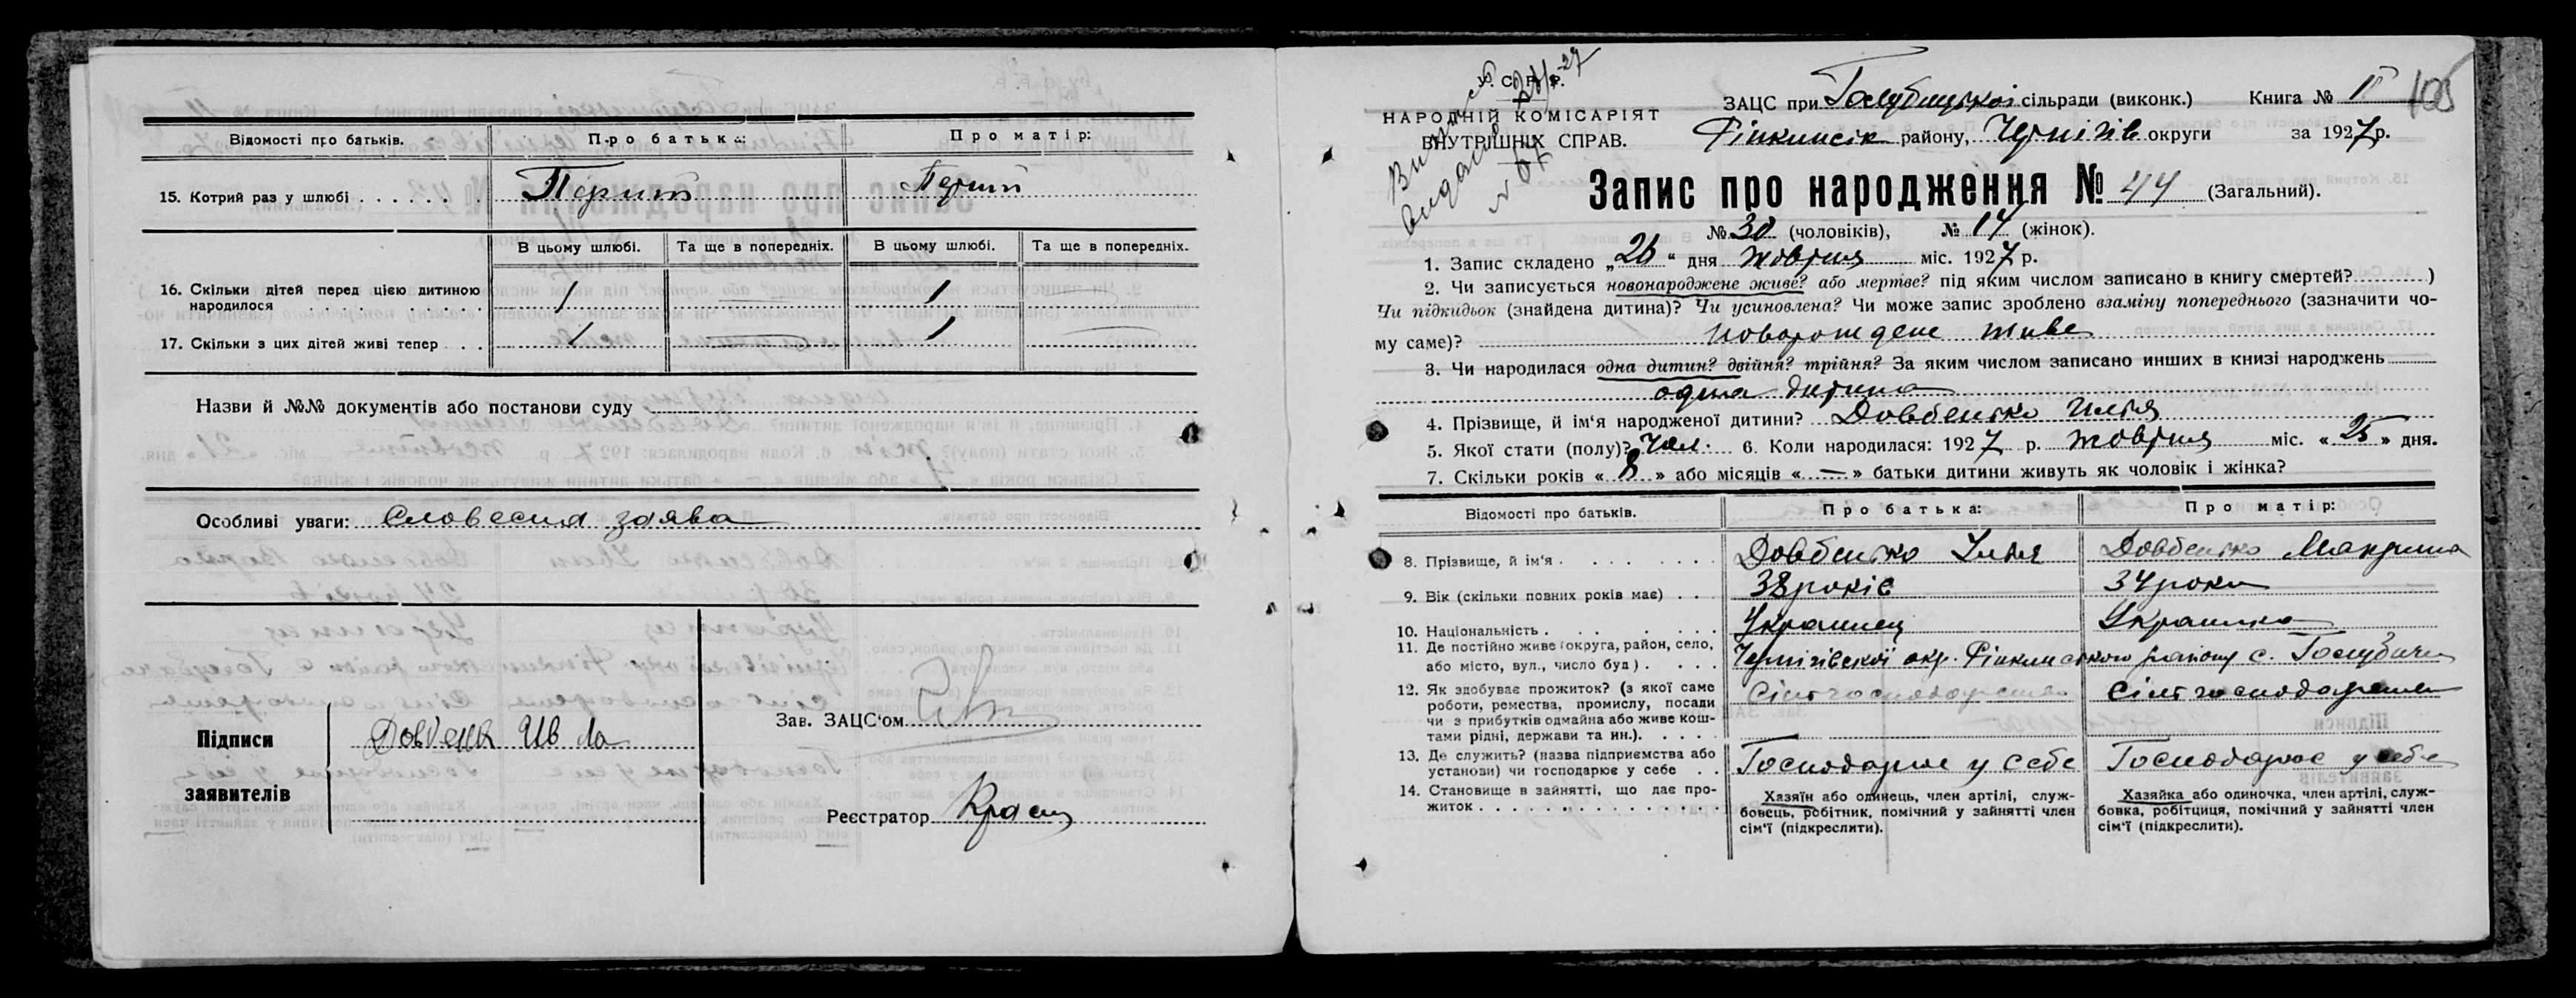 Відомості про батьків.
Про батька:
Про матір:
15. Котрий раз у шлюбі
Перший
Перший
В цьому шлюбі.
Та ще в попередніх.
В цьому шлюбі.
Та ще в попередніх.
16. Скільки дітей перед цією дитиною
народилося
1
—
1
—
17. Скільки з цих дітей живі тепер
1
—
1
—
Назви й №№ документів або постанови суду
Особливі уваги: Словесна заява
Підписи
заявителів
Зав. ЗАЦС'ом
Реєстратор
У. С. Р. Р.
НАРОДНІЙ КОМІСАРІЯТ
ВНУТРІШНІХ СПРАВ.
ЗАЦС при Голубицькой сільради (виконк.)
Книга № II
105
Ріпкинськ району, Чернігів округи
за 1927 р.
Запис про народження № 44 (Загальний).
№ 30 (чоловіків), № 14 (жінок).
1. Запис складено „26“ дня жовтня міс. 1927 р.
2. Чи записується новонароджене живе? або мертве? під яким числом записано в книгу смертей? )
Чи підкидьок (знайдена дитина)? Чи усиновлена? Чи може запис зроблено взаміну попереднього (зазначити чо-
му саме)? новорождене живе
3. Чи народилася одна дитин? двійня? трійня? За яким числом записано инших в книзі народжень
одна дитина
4. Прізвище, й ім'я народженої дитини? Довбенько Илья
5. Якої стати (полу)? Чол. 6. Коли народилася: 1927 р. жовтня міс. «25» дня.
7. Скільки років «8» або місяців «—» батьки дитини живуть як чоловік і жінка?
Відомості про батьків.
Про батька:
Про матір:
8. Прізвище, й ім'я
Довбенько Илья
Довбенько Макрина
9. Вік (скільки повних років має)
38 років
34 роки
10. Національність
Украинец
Украинка
11. Де постійно живе (округа, район, село,
або місто, вул., число буд)
Чернігівскої окр. Ріпкинського району с. Голубичи
12. Як здобуває прожиток? (з якої саме
роботи, ремества, промислу, посади
чи з прибутків одмайна або живе кош-
тами рідні, держави та ин.).
13. Де служить? (назва підприємства або
установи) чи господарює у себе
Господарює у себе
Господарює у себе
14. Становище в зайнятті, що дає про-
житок
Хазяїн або одинець, член артілі, служ-
бовець, робітник, помічний у зайнятті член
сім'ї (підкреслити).
Хазяйка або одиночка, член артілі, служ-
бовка, робітниця, помічний у зайнятті член
сім'ї (підкреслити).